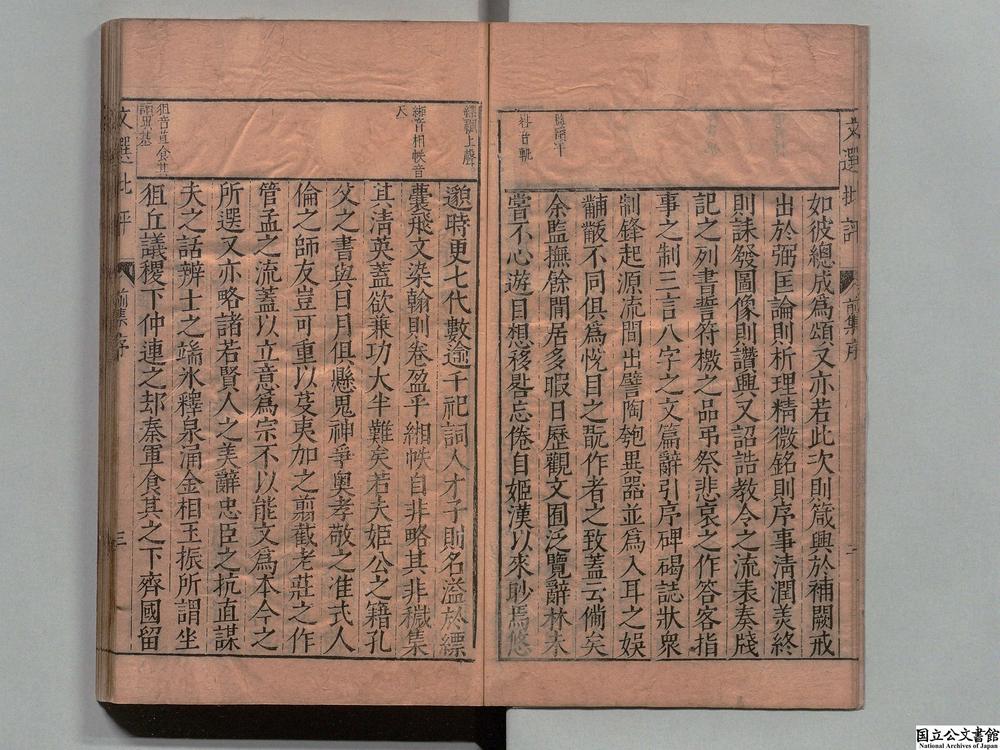 文選批評 前集序 二
如彼總成為頌又亦若此次則箴興於補闕戒
出於弼匡論則析理精微銘則序事清潤美終
則誄發圖像則讚興又詔誥教令之流表奏牋
記之列書誓符檄之品弔祭悲哀之作答客指
事之制三言八字之文篇辭引序碑碣誌狀衆
制鋒起源流間出譬陶匏異器並為入耳之娛
黼黻不同俱為恱目之翫作者之致蓋云備矣
余監撫餘閒居多暇日歷觀文囿泛覽辭林未
嘗不心遊目想移晷忘倦自姬漢以來眇焉悠
上聲
邈時更七代數逾千祀詞人才子則名溢於縹
緗音相帙音
囊飛文染翰則卷盈乎緗帙自非略其非穢集
其清英蓋欲兼功大半難矣若夫姬公之籍孔
父之書與日月俱懸鬼神爭奧孝敬之准式人
倫之師友豈可重以芟夷加之翦截老莊之作
管孟之流蓋以立意為宗不以能文為本今之
所選又亦略諸若賢人之美辭忠臣之抗直謀
夫之話辨士之端氷釋泉涌金相玉振所謂坐
狙音苴食其
狙丘議稷下仲連之却秦軍食其之下齊國留
文選批評 前集序 三
国立公文書館
National Archives of Japan